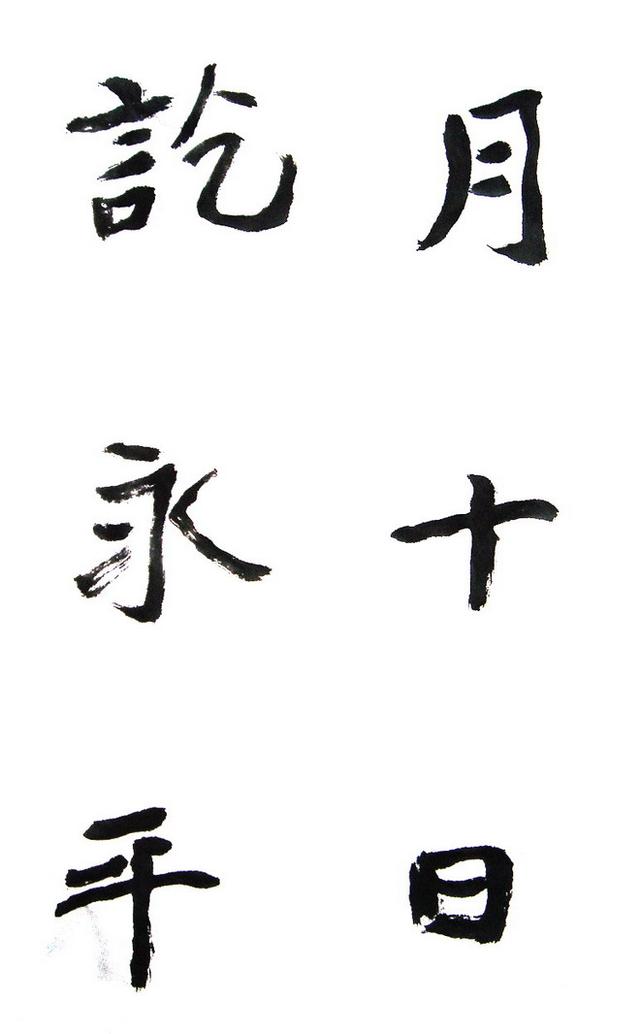 月十日
訖永平